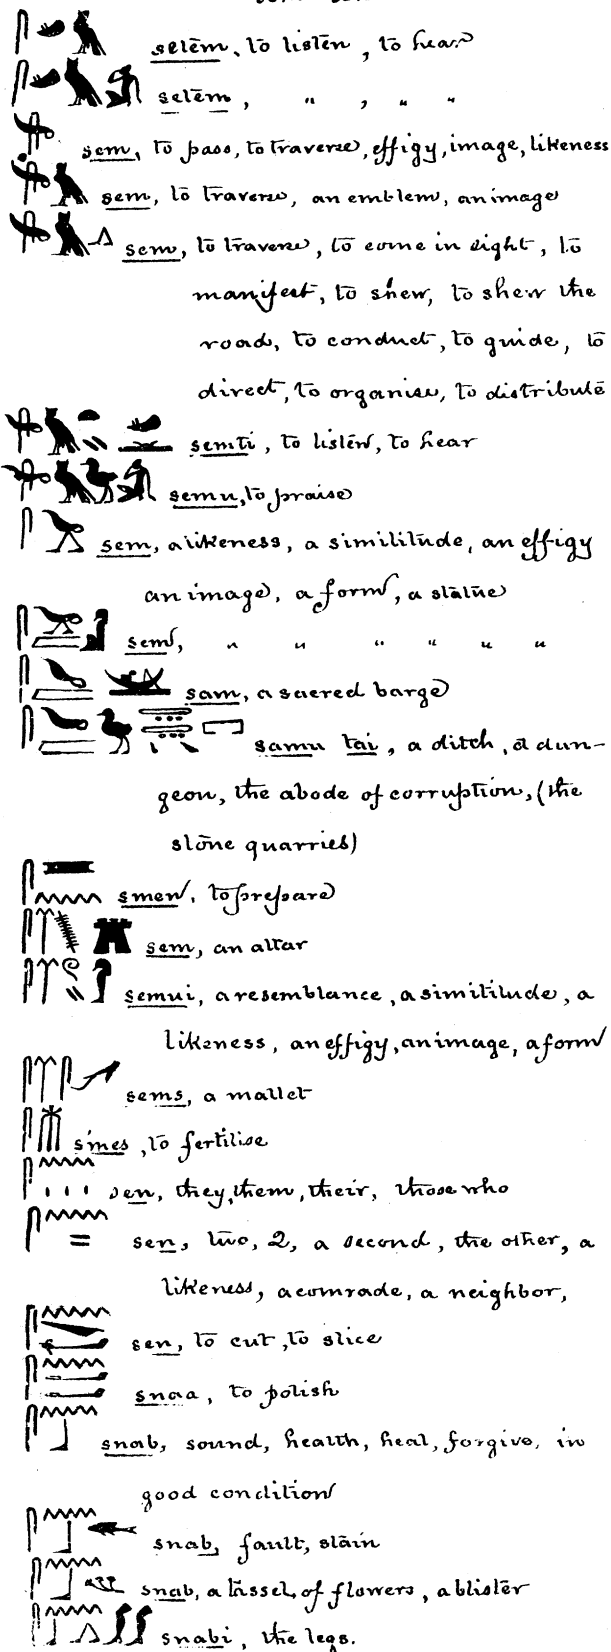 setem, to listen, to hear
setem, " , " "
sem, to pass, to traverse, effigy, image, likeness
sem, to traverse, an emblem, an image
sem, to traverse, to come in sight, to
manifest, to shew, to shew the
road, to conduct, to guide, to
direct, to organise, to distribute
semti, to listen, to hear
semu, to praise
sem, a likeness, a similitude, an effigy
an image, a form, a statue
sem, " " " " " "
sam, a sacred barge
samu tai, a ditch, a dun-
geon, the abode of corruption, (the
stone quarries)
smen, to prepare
sem, an altar
semui, a resemblance, a similitude, a
likeness, an effigy, an image, a form
sems, a mallet
smes, to fertilise
sen, they, them, their, those who
sen, two, 2, a second, the other, a
likeness, a comrade, a neighbor,
sen, to cut, to slice
snaa, to polish
snab, sound, health, heal, forgive, in
good condition
snab, fault, stain
snab, a tassel, of flowers, a blister
snabi, the legs.